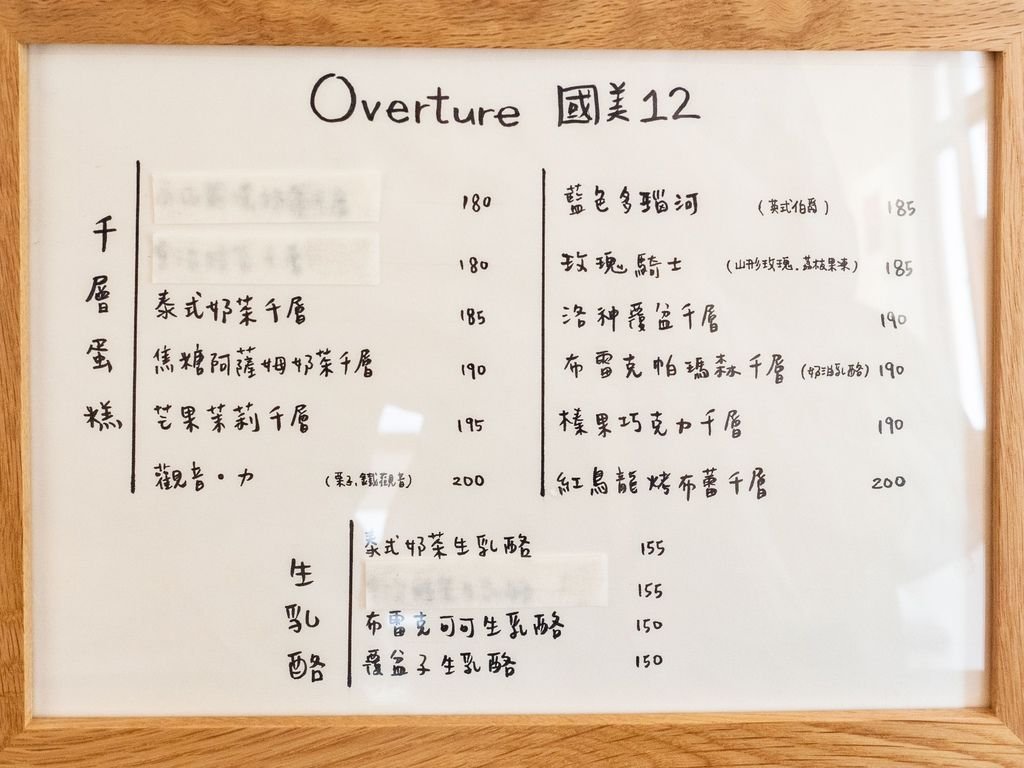 Overture 國美12
千層蛋糕
180
180
泰式奶茶千層 185
焦糖阿薩姆奶茶千層 190
芒果茉莉千層 195
觀音・力 (栗子.鐵觀音) 200
藍色多瑙河 (英式伯爵) 185
玫瑰騎士 (山形玫瑰.荔枝果凍) 185
洛神覆盆千層 190
布雷克帕瑪森千層 (奶油乳酪) 190
榛果巧克力千層 190
紅烏龍烤布蕾千層 200
生乳酪
泰式奶茶生乳酪 155
155
布雷克可可生乳酪 150
覆盆子生乳酪 150